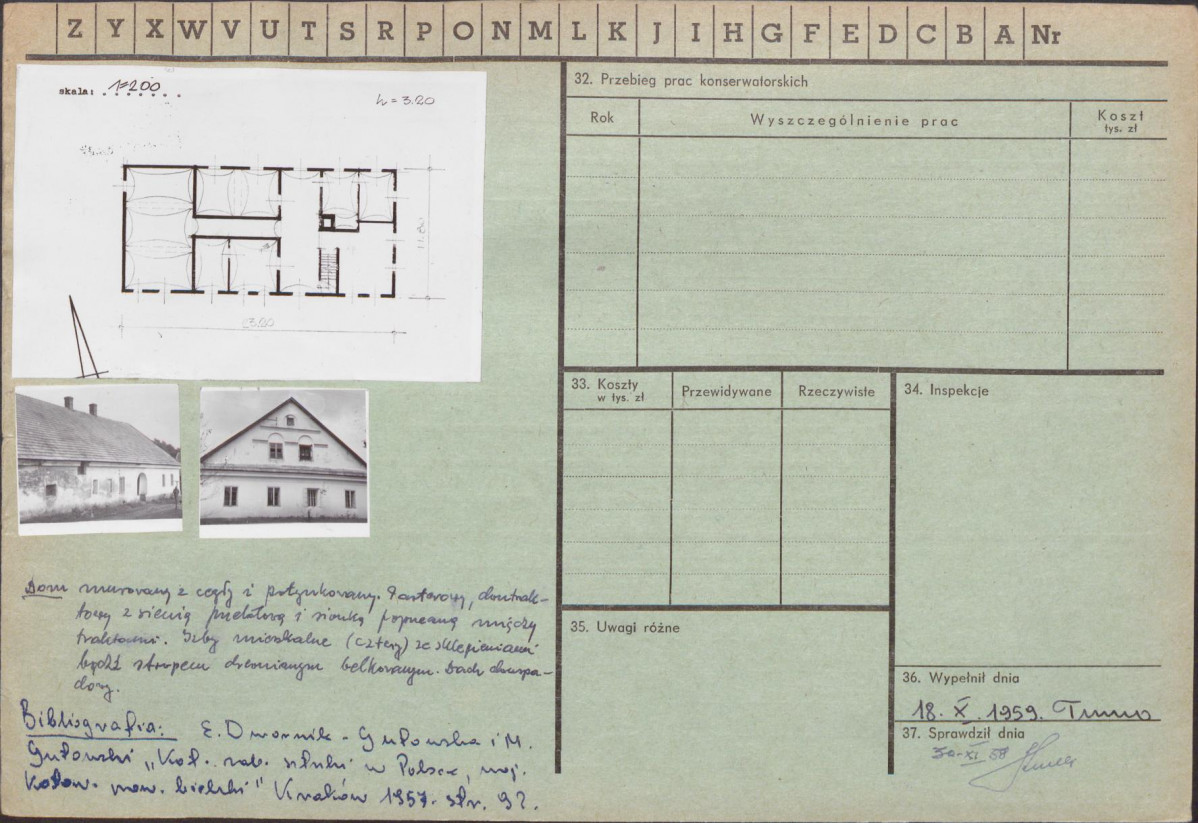 Z Y X W V U T S R P O N M L K J I H G F E D C B A Nr
skala: 1=200
h = 3.20
11.80
23.20
Dom murowany z cegły i potynkowany. Parterowy, dwutrak-
towy z sienią przelotową i sionką poprzeczną między
traktami. Izby mieszkalne (cztery) ze sklepieniami
bądź stropem drewnianym belkowanym. Dach dwuspa-
dowy.
Bibliografia: E. Dwornik-Gutowska i M.
Gutowski "Kat. zab. sztuki w Polsce, woj.
Katow. pow. bielski" Kraków 1957. str. 9
32. Przebieg prac konserwatorskich
Rok
Wyszczególnienie prac
Koszt
tys. zł
33. Koszty
w tys. zł
Przewidywane
Rzeczywiste
34. Inspekcje
35. Uwagi różne
36. Wypełnił dnia
18. X. 1959.
37. Sprawdził dnia
30-XI